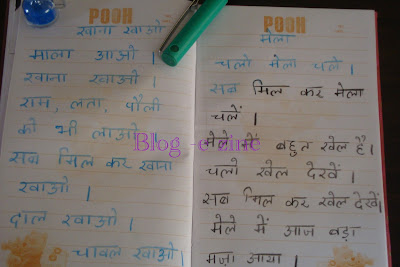 POOH
खाना खाओ
माला आओ ।
खाना खाओ ।
राम, लता, पौली
को भी लाओ ।
सब मिल कर खाना
खाओ ।
दाल खाओ ।
चावल खाओ ।
POOH
मेला
चलो मेला चले ।
सब मिल कर मेला
चलें ।
मेले में बहुत खेल है ।
चलो खेल देखें ।
सब मिल कर खेल देखें ।
मेले में आज बड़ा
मज़ा आया ।
Blog-ezine